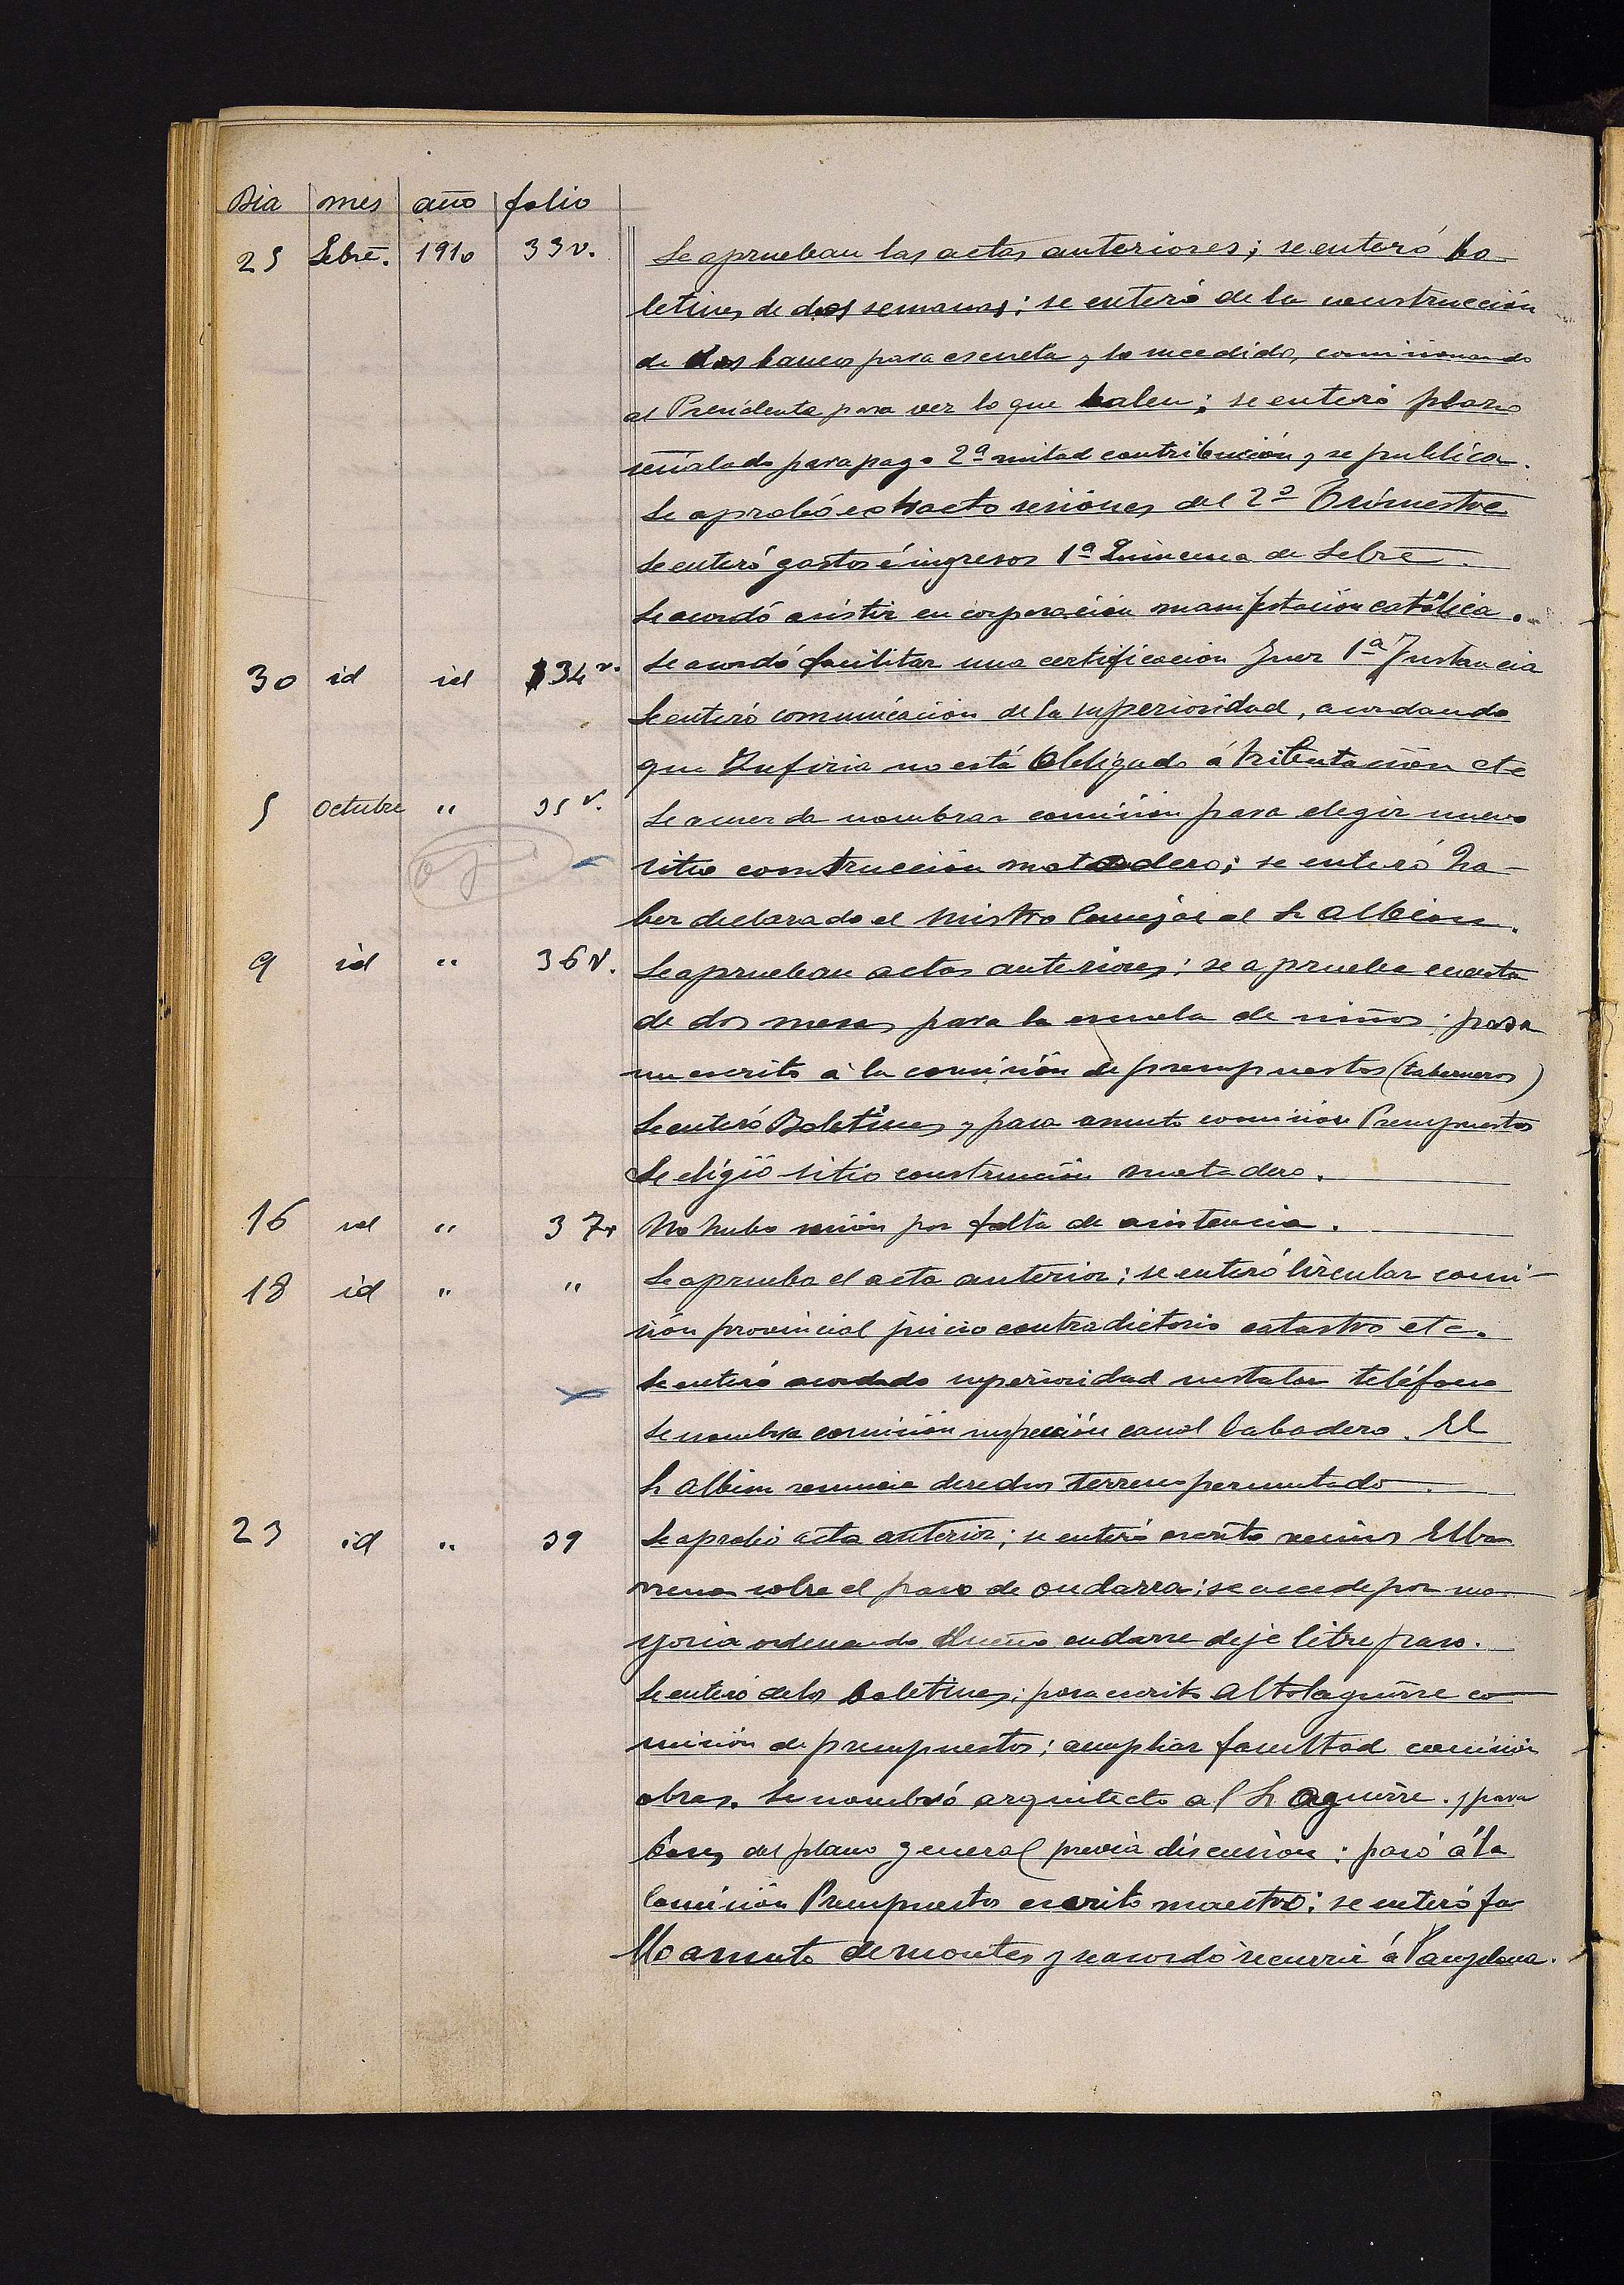 Dia mes año folio
25 Sebre. 1910 33v. Se aprueban las actas anteriores; se enteró bo-
letines de dos semanas; se enteró de la construcción
de dos bancos para escuela y lo sucedido, comisionando
al Presidente para ver lo que balen; se enteró plazo
señalado para pago 2ª mitad contribución y se publica.
Se aprobó extracto sesiones del 2º Trimestre
Se enteró gastos é ingresos 1ª Quincena de Sebre.
Se acordó asistir en corporación manifestación católica.
30 id id 34v. Se acordó facilitar una certificación Juez 1ª Instancia
Se enteró comunicación de la superioridad, acordando
que no está obligado á tributación etc
5 Octubre " 35v. Se acuerda nombrar comisión para elegir nuevo
sitio construcción matadero; se enteró ha-
ber declarado el Concejal al Sr Albean.
9 id " 36v. Se aprueban actas anteriores; se aprueba cuenta
de dos mesas para la escuela de niños; pasa
un escrito á la comisión de presupuestos (taberneros)
Se enteró Boletines y pasa asunto comisión Presupuestos
Se eligió sitio construcción matadero.
16 id " 37v No hubo sesión por falta de asistencia.
18 id " " Se aprueba el acta anterior; se enteró circular comi-
sión provincial juicio contradictorio catastro etc.
Se enteró acordado superioridad instalar teléfono
Se nombra comisión inspección canal labadero. El
Sr renuncia derechos terreno permutado.
23 id " 39 Se aprobó acta anterior; se enteró escrito vecinos Elba
rrena sobre el paso de ondarra; se accede por ma
yoria ordenando dueño ondarra deje libre paso.
Se enteró de los boletines; pasa escrito Altolaguirre co
misión de presupuestos; ampliar facultad comisión
obras. Se nombró arquitecto al Sr Aguirre. y para
bases del plano general previa discusión; pasó á la
Comisión Presupuestos escrito maestro; se enteró fa
llo asunto de montes y se acordó recurrir á Pamplona.